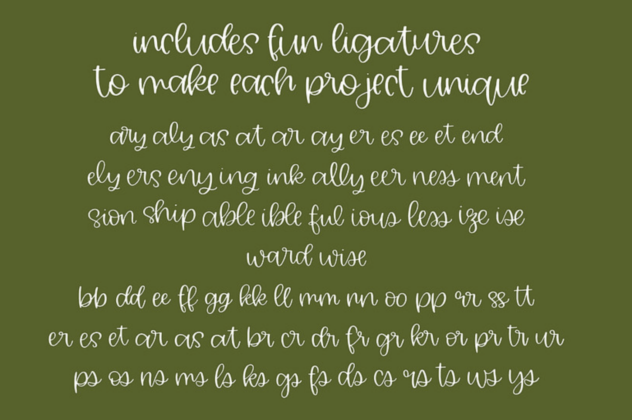 includes fun ligatures
to make each project unique
ary aly as at ar ay er es ee et end
ely ers eny ing ink ally eer ness ment
sion ship able ible ful ious less ize ise
ward wise
bb dd ee ff gg kk ll mm nn oo pp rr ss tt
er es et ar as at br cr dr fr gr kr or pr tr ur
ps os ns ms ls ks gs fs ds cs rs ts ws ys